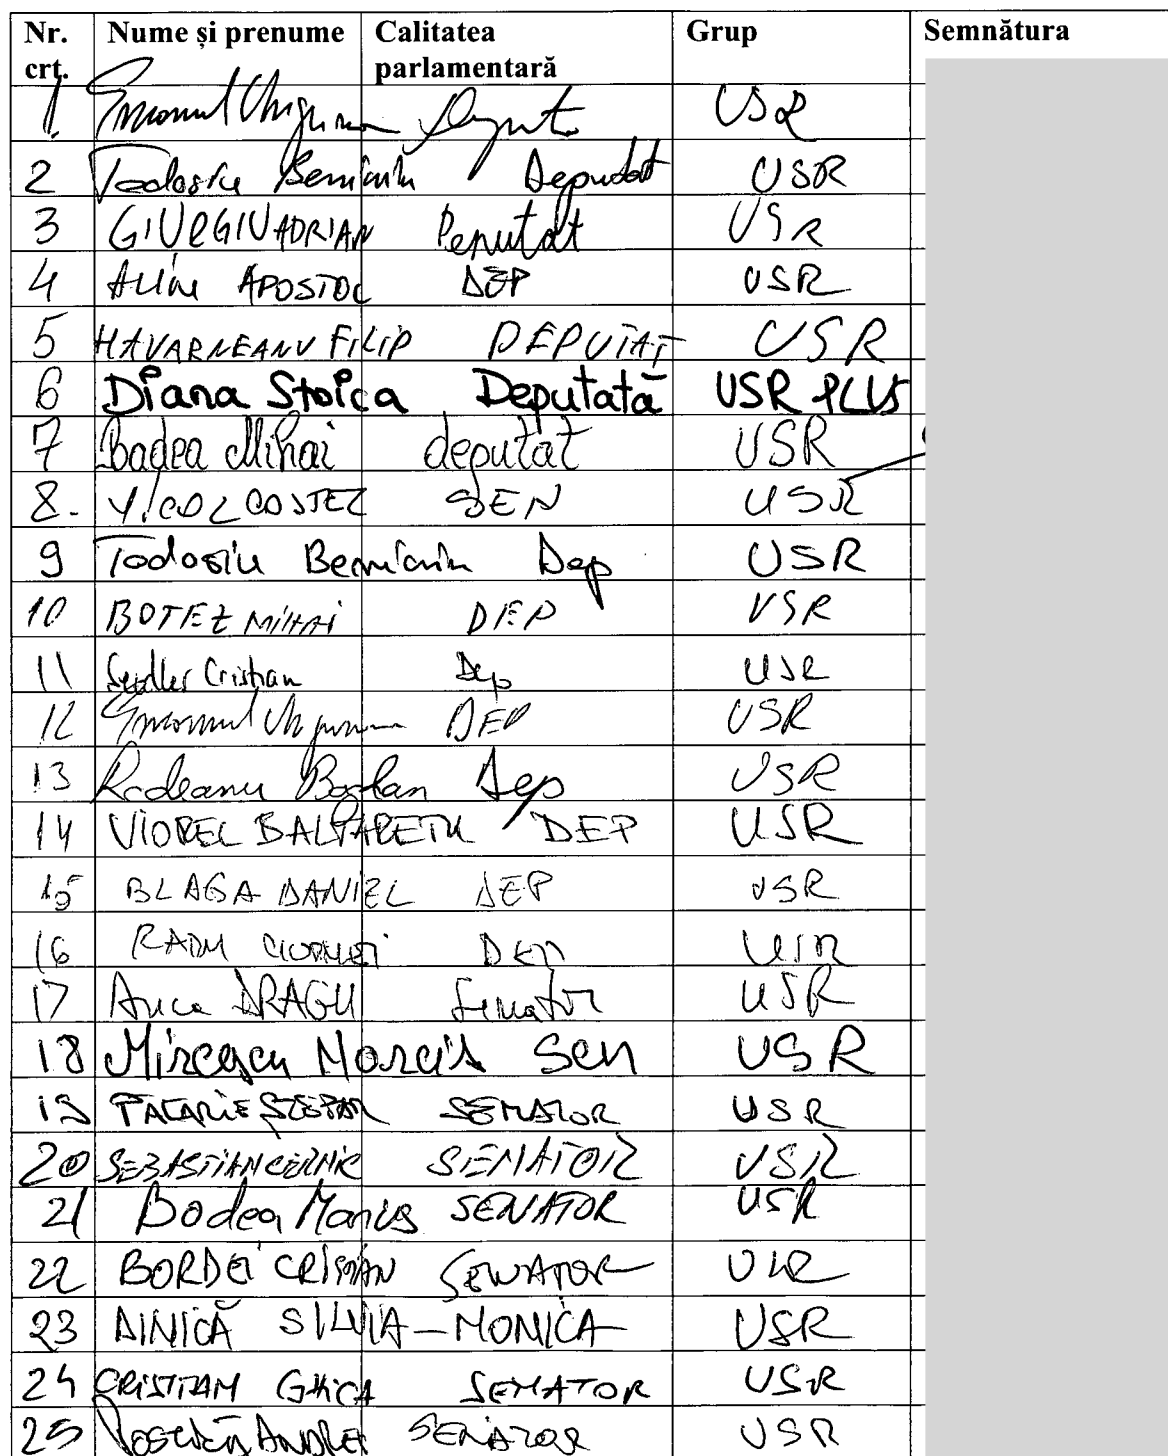 Nr. crt. Nume și prenume Calitatea parlamentară Grup Semnătura
1. Emanuel Ungureanu Deput. USR
2 Todosiu Beniamin Deputat USR
3 GIURGIU ADRIAN Deputat USR
4 Alin APOSTOL DEP USR
5 HAVARNEANU FILIP DEPUTAT USR
6 Diana Stoica Deputată USR PLUS
7 Badea Mihai deputat USR
8. VICOL COSTEL SEN USR
9 Todosiu Beniamin Dep USR
10 BOTEZ MIHAI DEP USR
11 Seidler Cristian Dep USR
12 Emanuel Ungureanu DEP USR
13 Rodeanu Bogdan Dep USR
14 VIOREL BALTARETU DEP USR
15 BLAGA DANIEL DEP USR
16 RADU CIORNEI DEP USR
17 Anca DRAGU Senator USR
18 Mircescu Narcis Sen USR
19 STEFAN SENATOR USR
20 SEBASTIAN CERNIC SENATOR USR
21 Bodea Marius SENATOR USR
22 BORDEI CRISTIAN SENATOR USR
23 DINICĂ SILVIA-MONICA USR
24 CRISTIAN GHICA SENATOR USR
25 ANDREI SENATOR USR